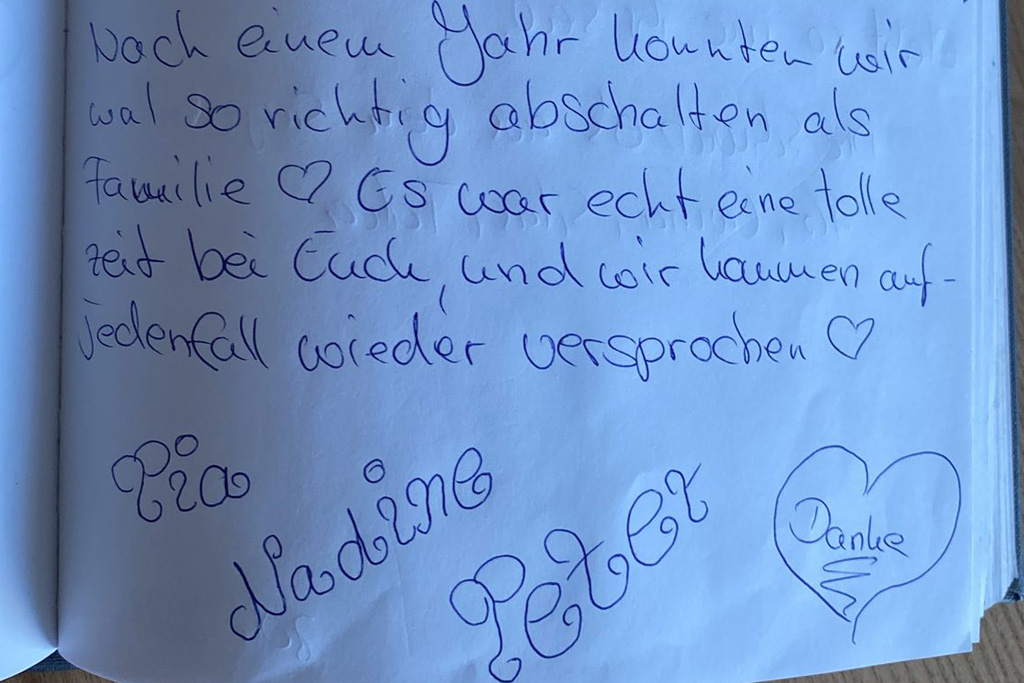 Nach einem Jahr konnten wir
mal so richtig abschalten als
Familie ♡ Es war echt eine tolle
zeit bei Euch, und wir kommen auf-
jedenfall wieder versprochen ♡
Pia
Nadine
Peter
Danke